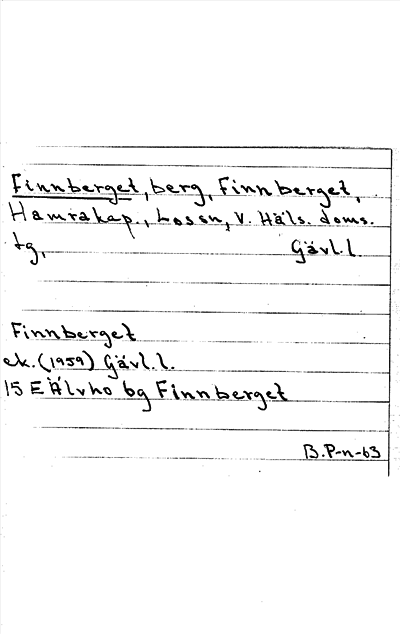 Finnberget, berg, Finnberget,
Hamrakap., Lossn, V. Häls. doms.
tg, Gävl.l.
Finnberget
ek. (1959) Gävl.l.
15 E Älvho bg Finnberget
B.P-n-63